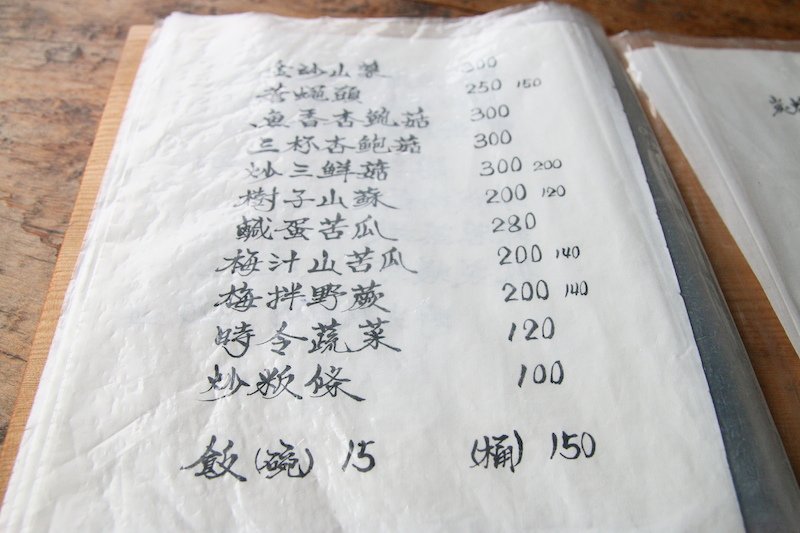 炒山蘇 300
蒼蠅頭 250 150
魚香杏鮑菇 300
三杯杏鮑菇 300
炒三鮮菇 300 200
樹子山蘇 200 120
鹹蛋苦瓜 280
梅汁山苦瓜 200 140
梅拌野蕨 200 140
時令蔬菜 120
炒粄條 100
飯(碗) 15 (桶) 150